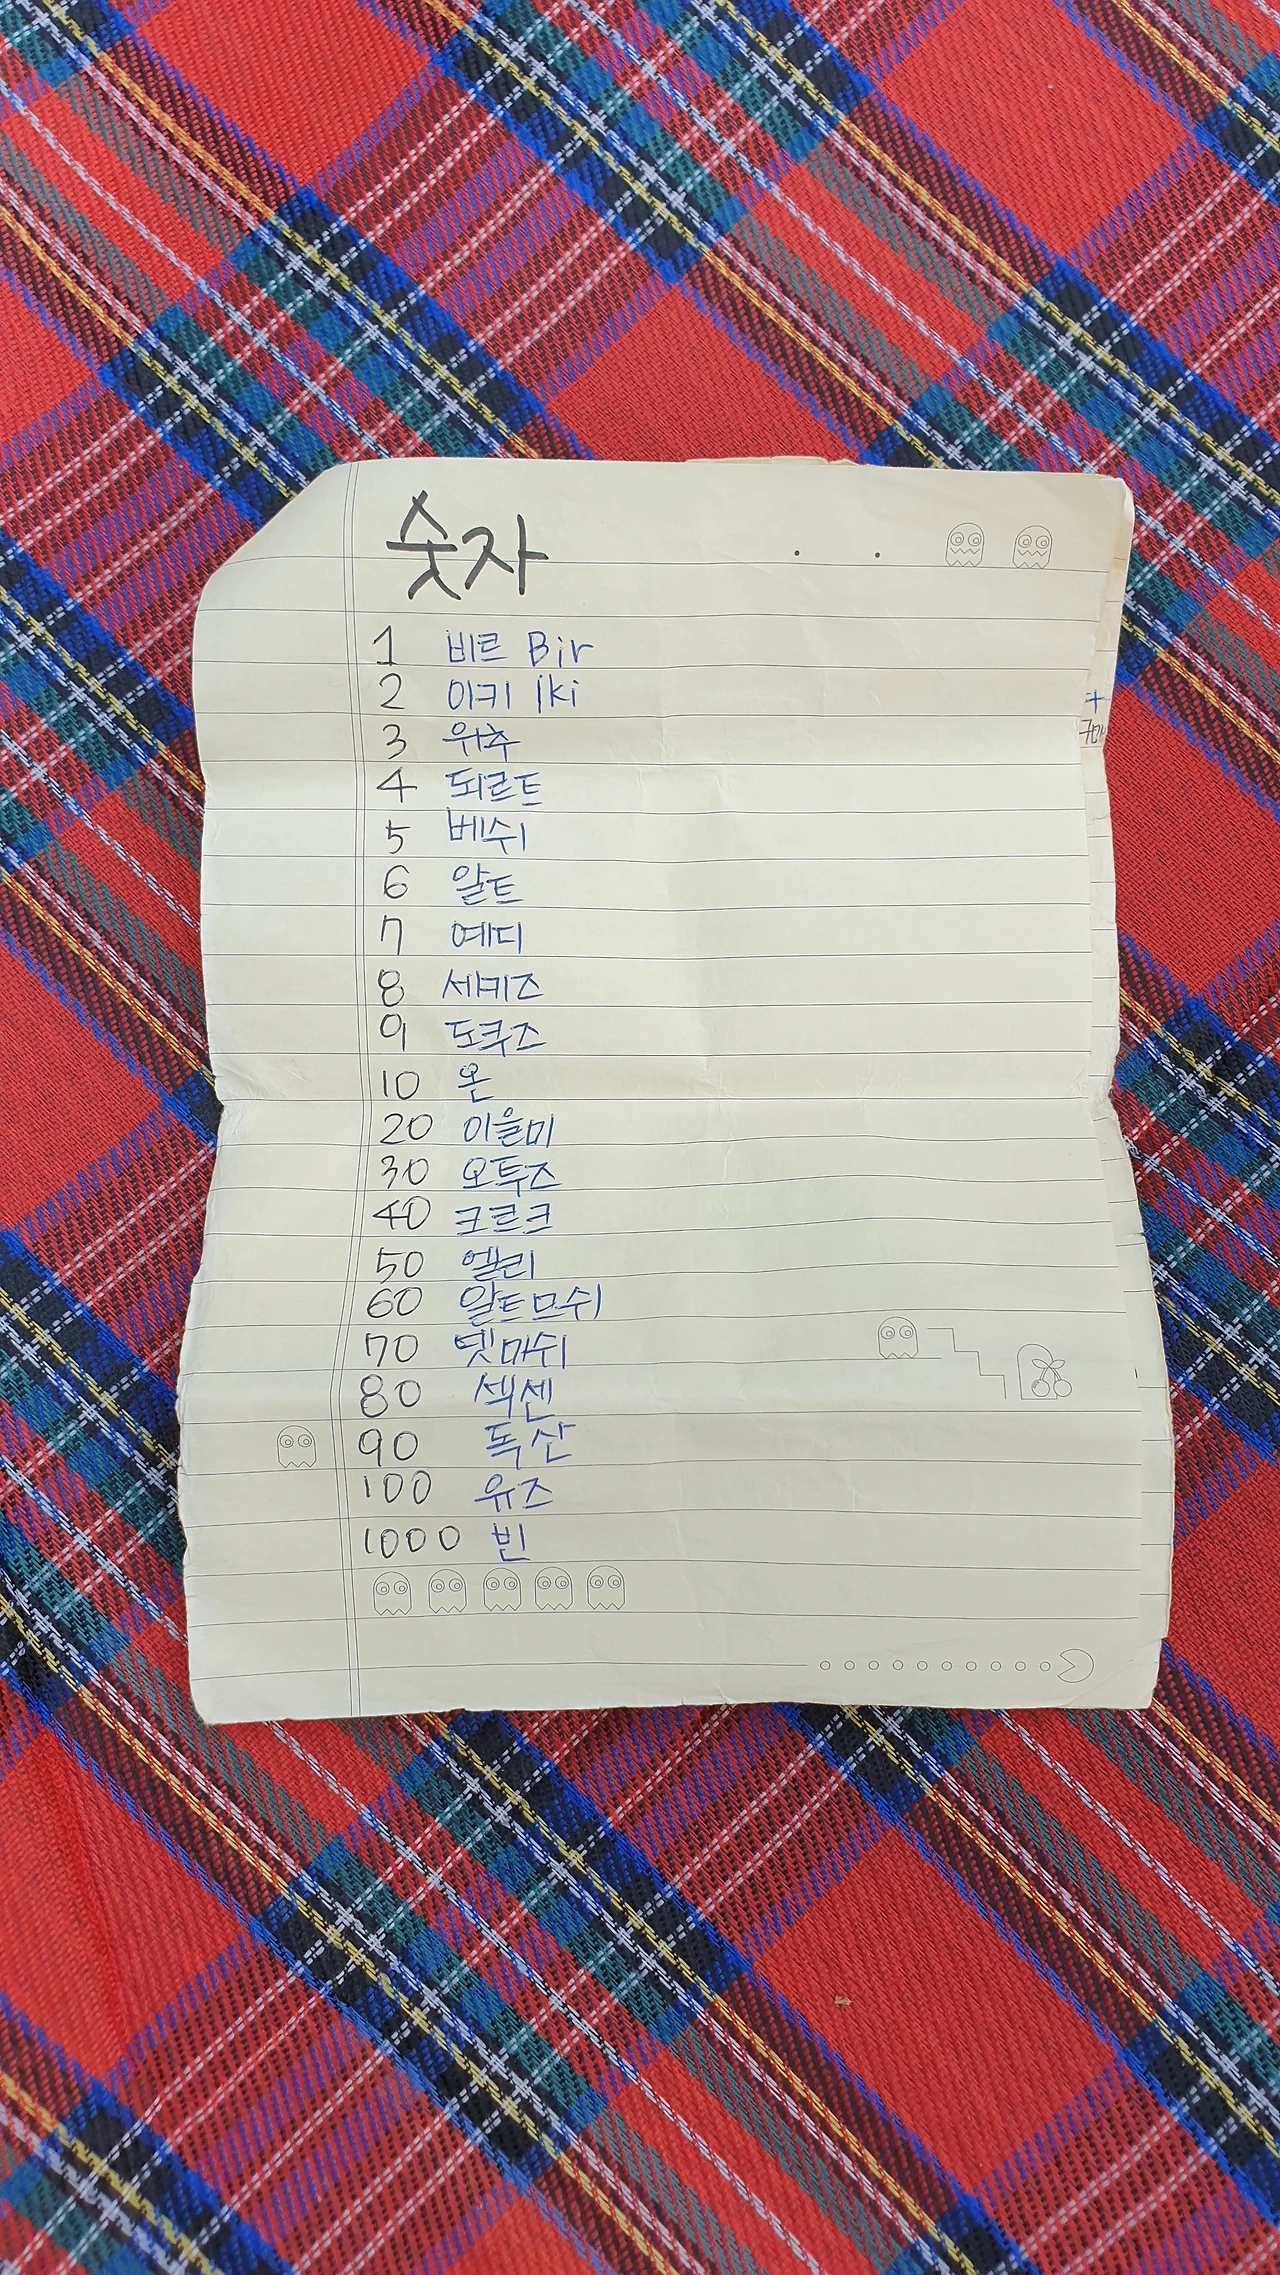 숫자
1 비르 Bir
2 이키 iki
3 위추
4 되르트
5 베쉬
6 알트
7 예디
8 세키즈
9 도쿠즈
10 온
20 이을미
30 오투즈
40 크르크
50 엘리
60 알트므쉬
70 뎃마쉬
80 섹센
90 독산
100 유즈
1000 빈